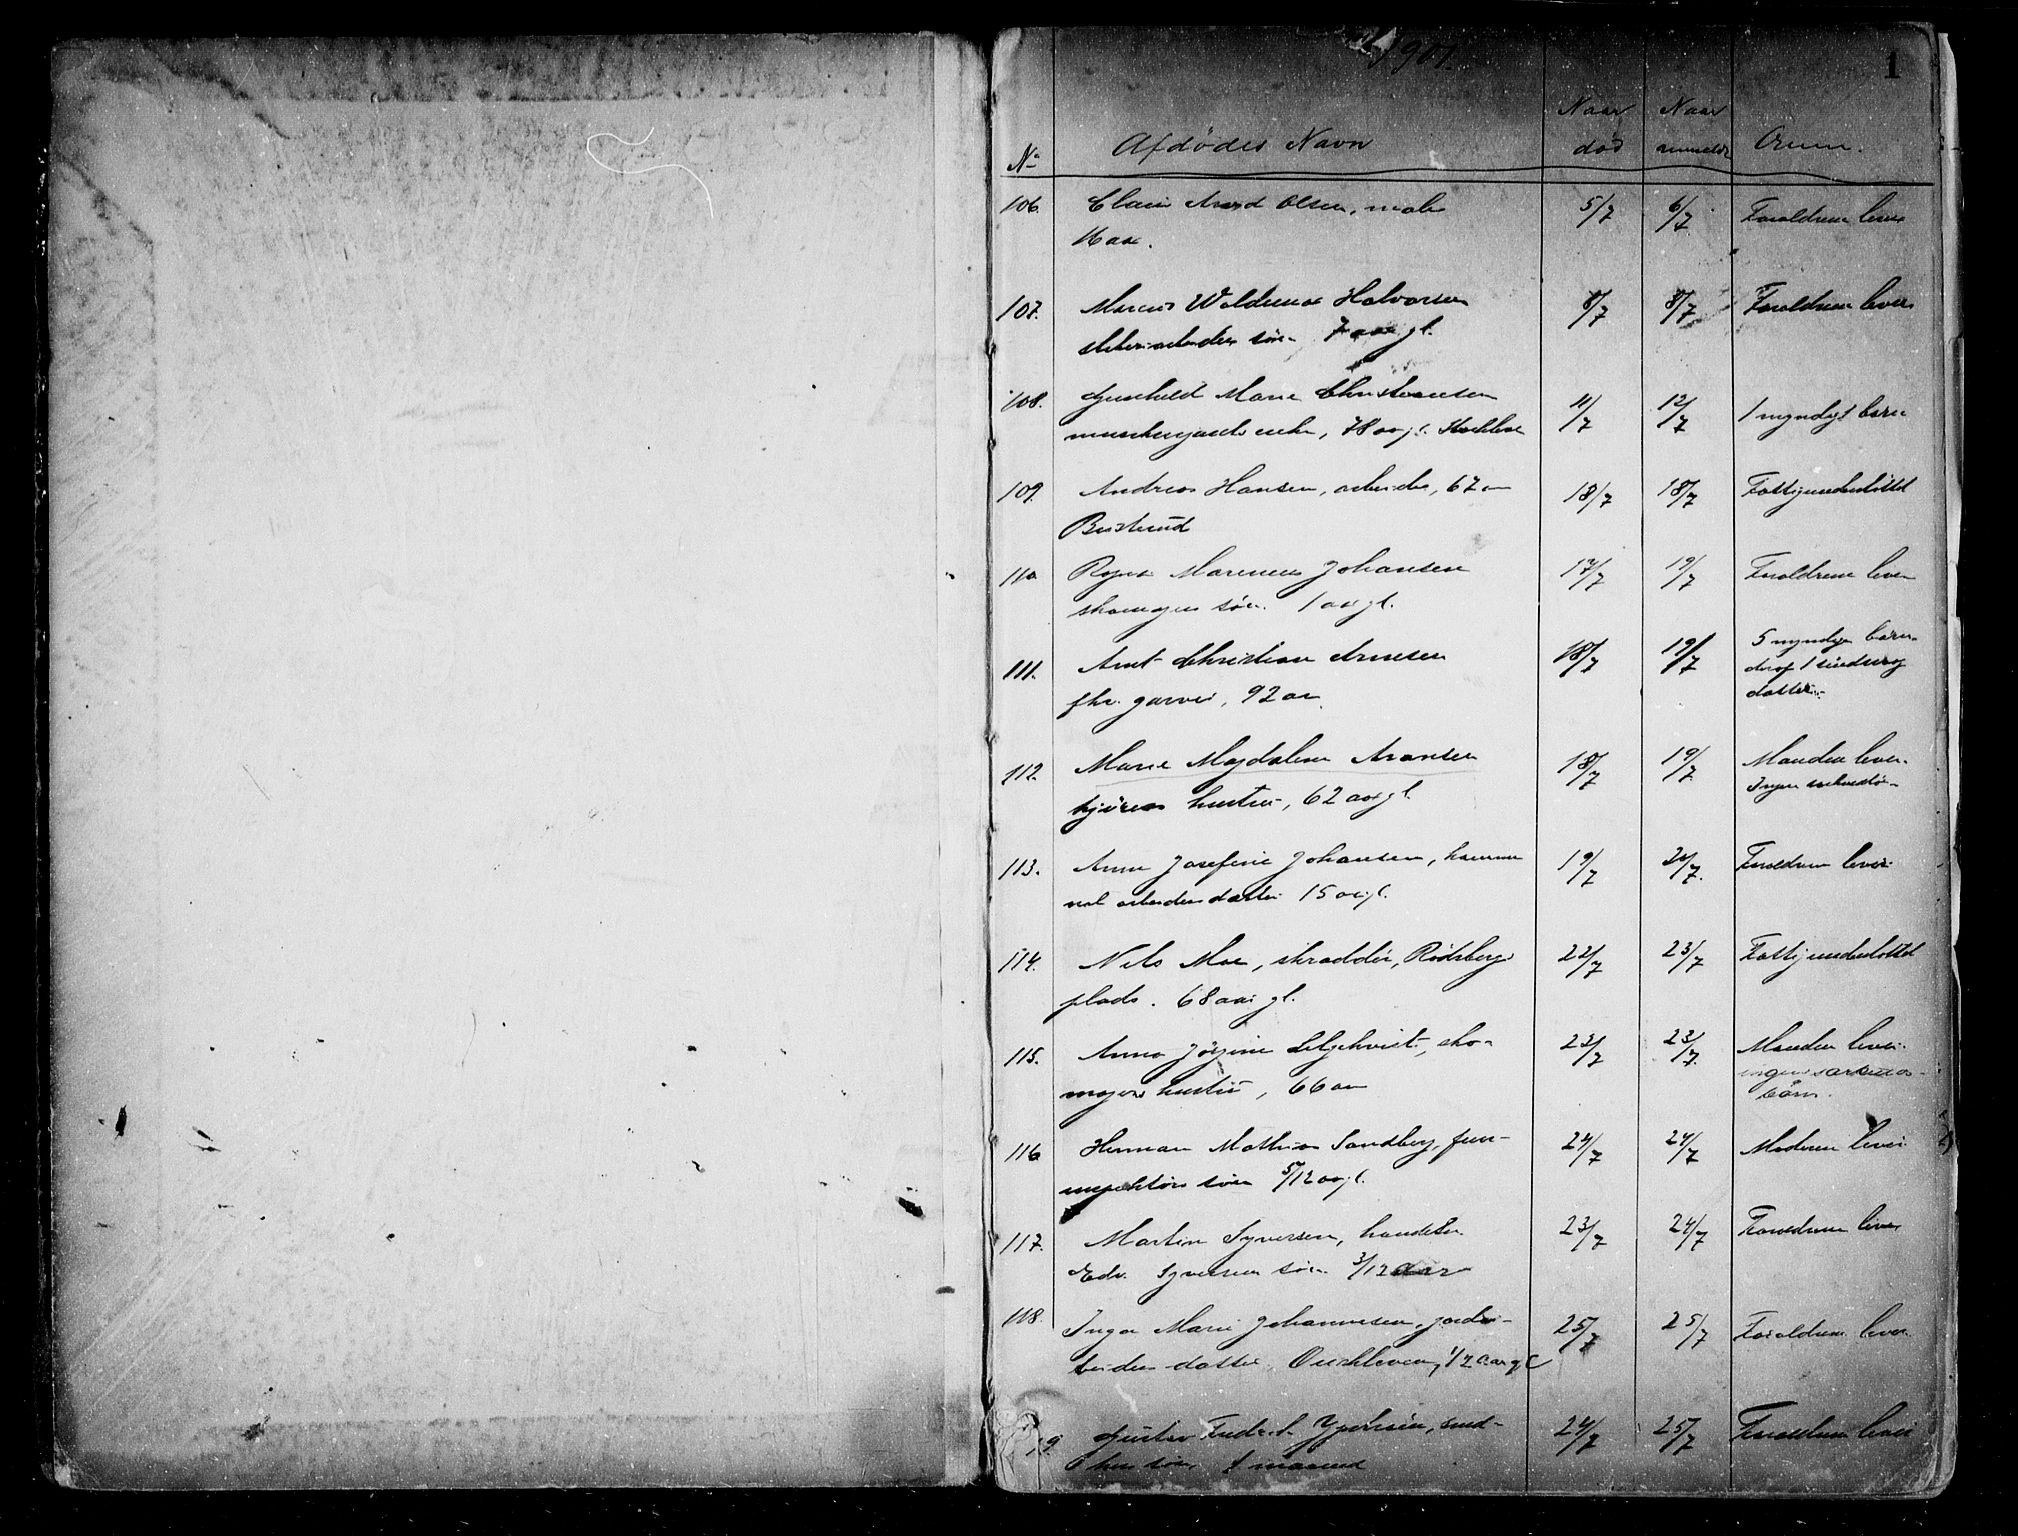 1901.
1
No Afdødes Navn Naar død Naar anmeldt Arvin.
106. Olsen, 5/7 6/7 Forældrene lever
107. Marcus Waldemar Halvorsen 8/7 8/7 Forældrene lever
søn 7 aar gl.
108. Gunhild Marie Christensen 11/7 12/7 1 myndigt barn
enke, 78 aar gl.
109. Andreas Hansen, arbeider, 67 aar 18/7 18/7 Fattigunderstøttet
Busterud
110 Johansen 17/7 19/7 Forældrene lever
skomager søn. 1 aar gl.
111. Christian Arnesen 18/7 19/7 5 myndige børn
fhv. garver, 92 aar deraf 1
datter
112. Marie Magdalene Aronsen 18/7 19/7 Manden lever.
hustru, 62 aar gl. Ingen
113. Anna Josefine Johansen, 19/7 20/7. Forældrene lever
arbeiders datter 15 aar gl.
114. Nils Moe, skrædder, Rødsberg 22/7 23/7 Fattigunderstøttet
plads. 68 aar gl.
115. Anna Jørgine Liljekvist, sko- 23/7 23/7. Manden lever.
magers hustru, 66 aar ingen særkuns-
børn.
116 Herman Mathias Sandberg, 24/7 24/7 Moderen lever
inspektørs søn 5/12 aar gl.
117. Martin Syversen, handelsm. 23/7 24/7 Forældrene lever
Edv. Syversen søn 3/12 aar
118. Inga Marie Johannesen, jordar- 25/7 25/7 Forældrene lever
beiders datter, 1/2 aar gl
119 Gustav Fredrik 24/7 25/7 Forældrene lever
søn maaned